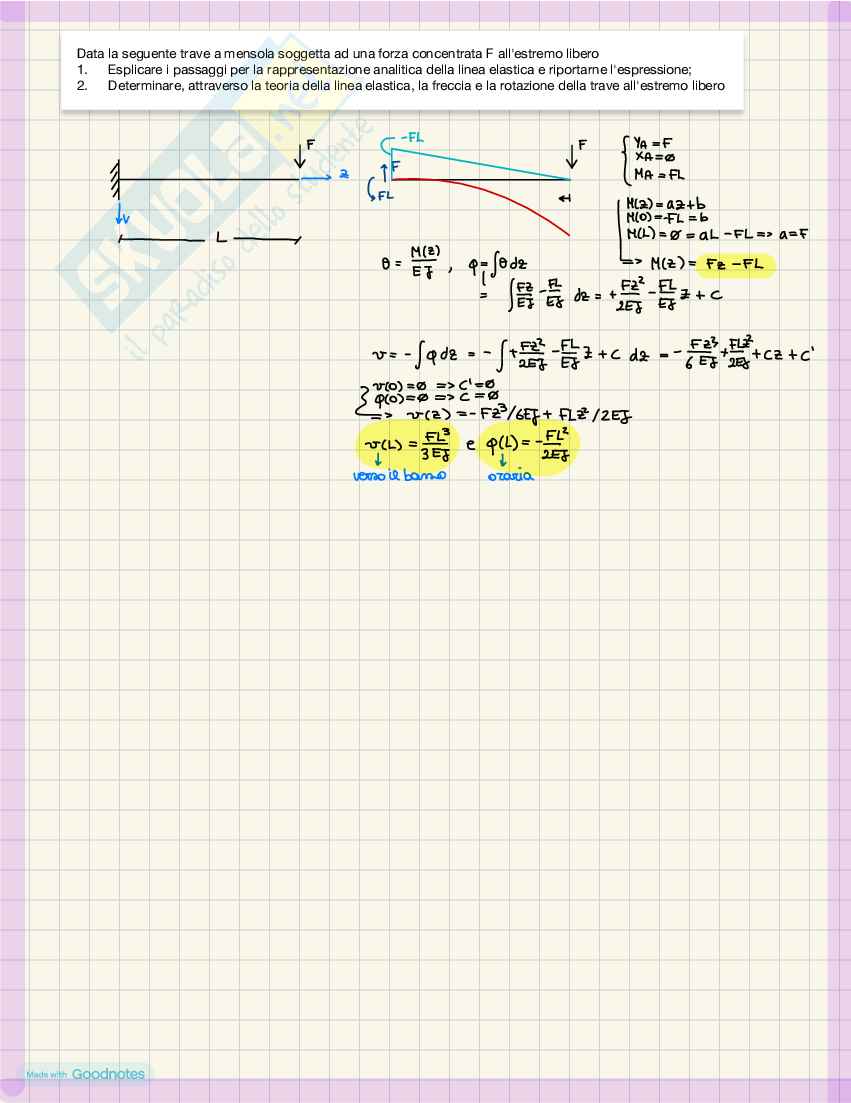 Data la seguente trave a mensola soggetta ad una forza concentrata F all'estremo libero
1. Esplicare i passaggi per la rappresentazione analitica della linea elastica e riportarne l'espressione;
2. Determinare, attraverso la teoria della linea elastica, la freccia e la rotazione della trave all'estremo libero
SKUOLA.net
il paradiso dello studente
F
z
v
L
-FL
F
FL
F
YA = F
XA = ∅
MA = FL
M(z) = az+b
M(0) = -FL = b
M(L) = ∅ = aL - FL => a=F
=> M(z) = Fz - FL
θ = M(z)/EJ , φ = ∫θdz
= ∫ Fz/EJ - FL/EJ dz = + Fz²/2EJ - FL/EJ z + C
v = - ∫φdz = - ∫ + Fz²/2EJ - FL/EJ z + C dz = - Fz³/6EJ + FLz²/2EJ + Cz + C'
v(0) = ∅ => C' = ∅
φ(0) = ∅ => C = ∅
=> v(z) = - Fz³/6EJ + FLz²/2EJ
v(L) = FL³/3EJ e φ(L) = - FL²/2EJ
verso il basso oraria
Made with Goodnotes